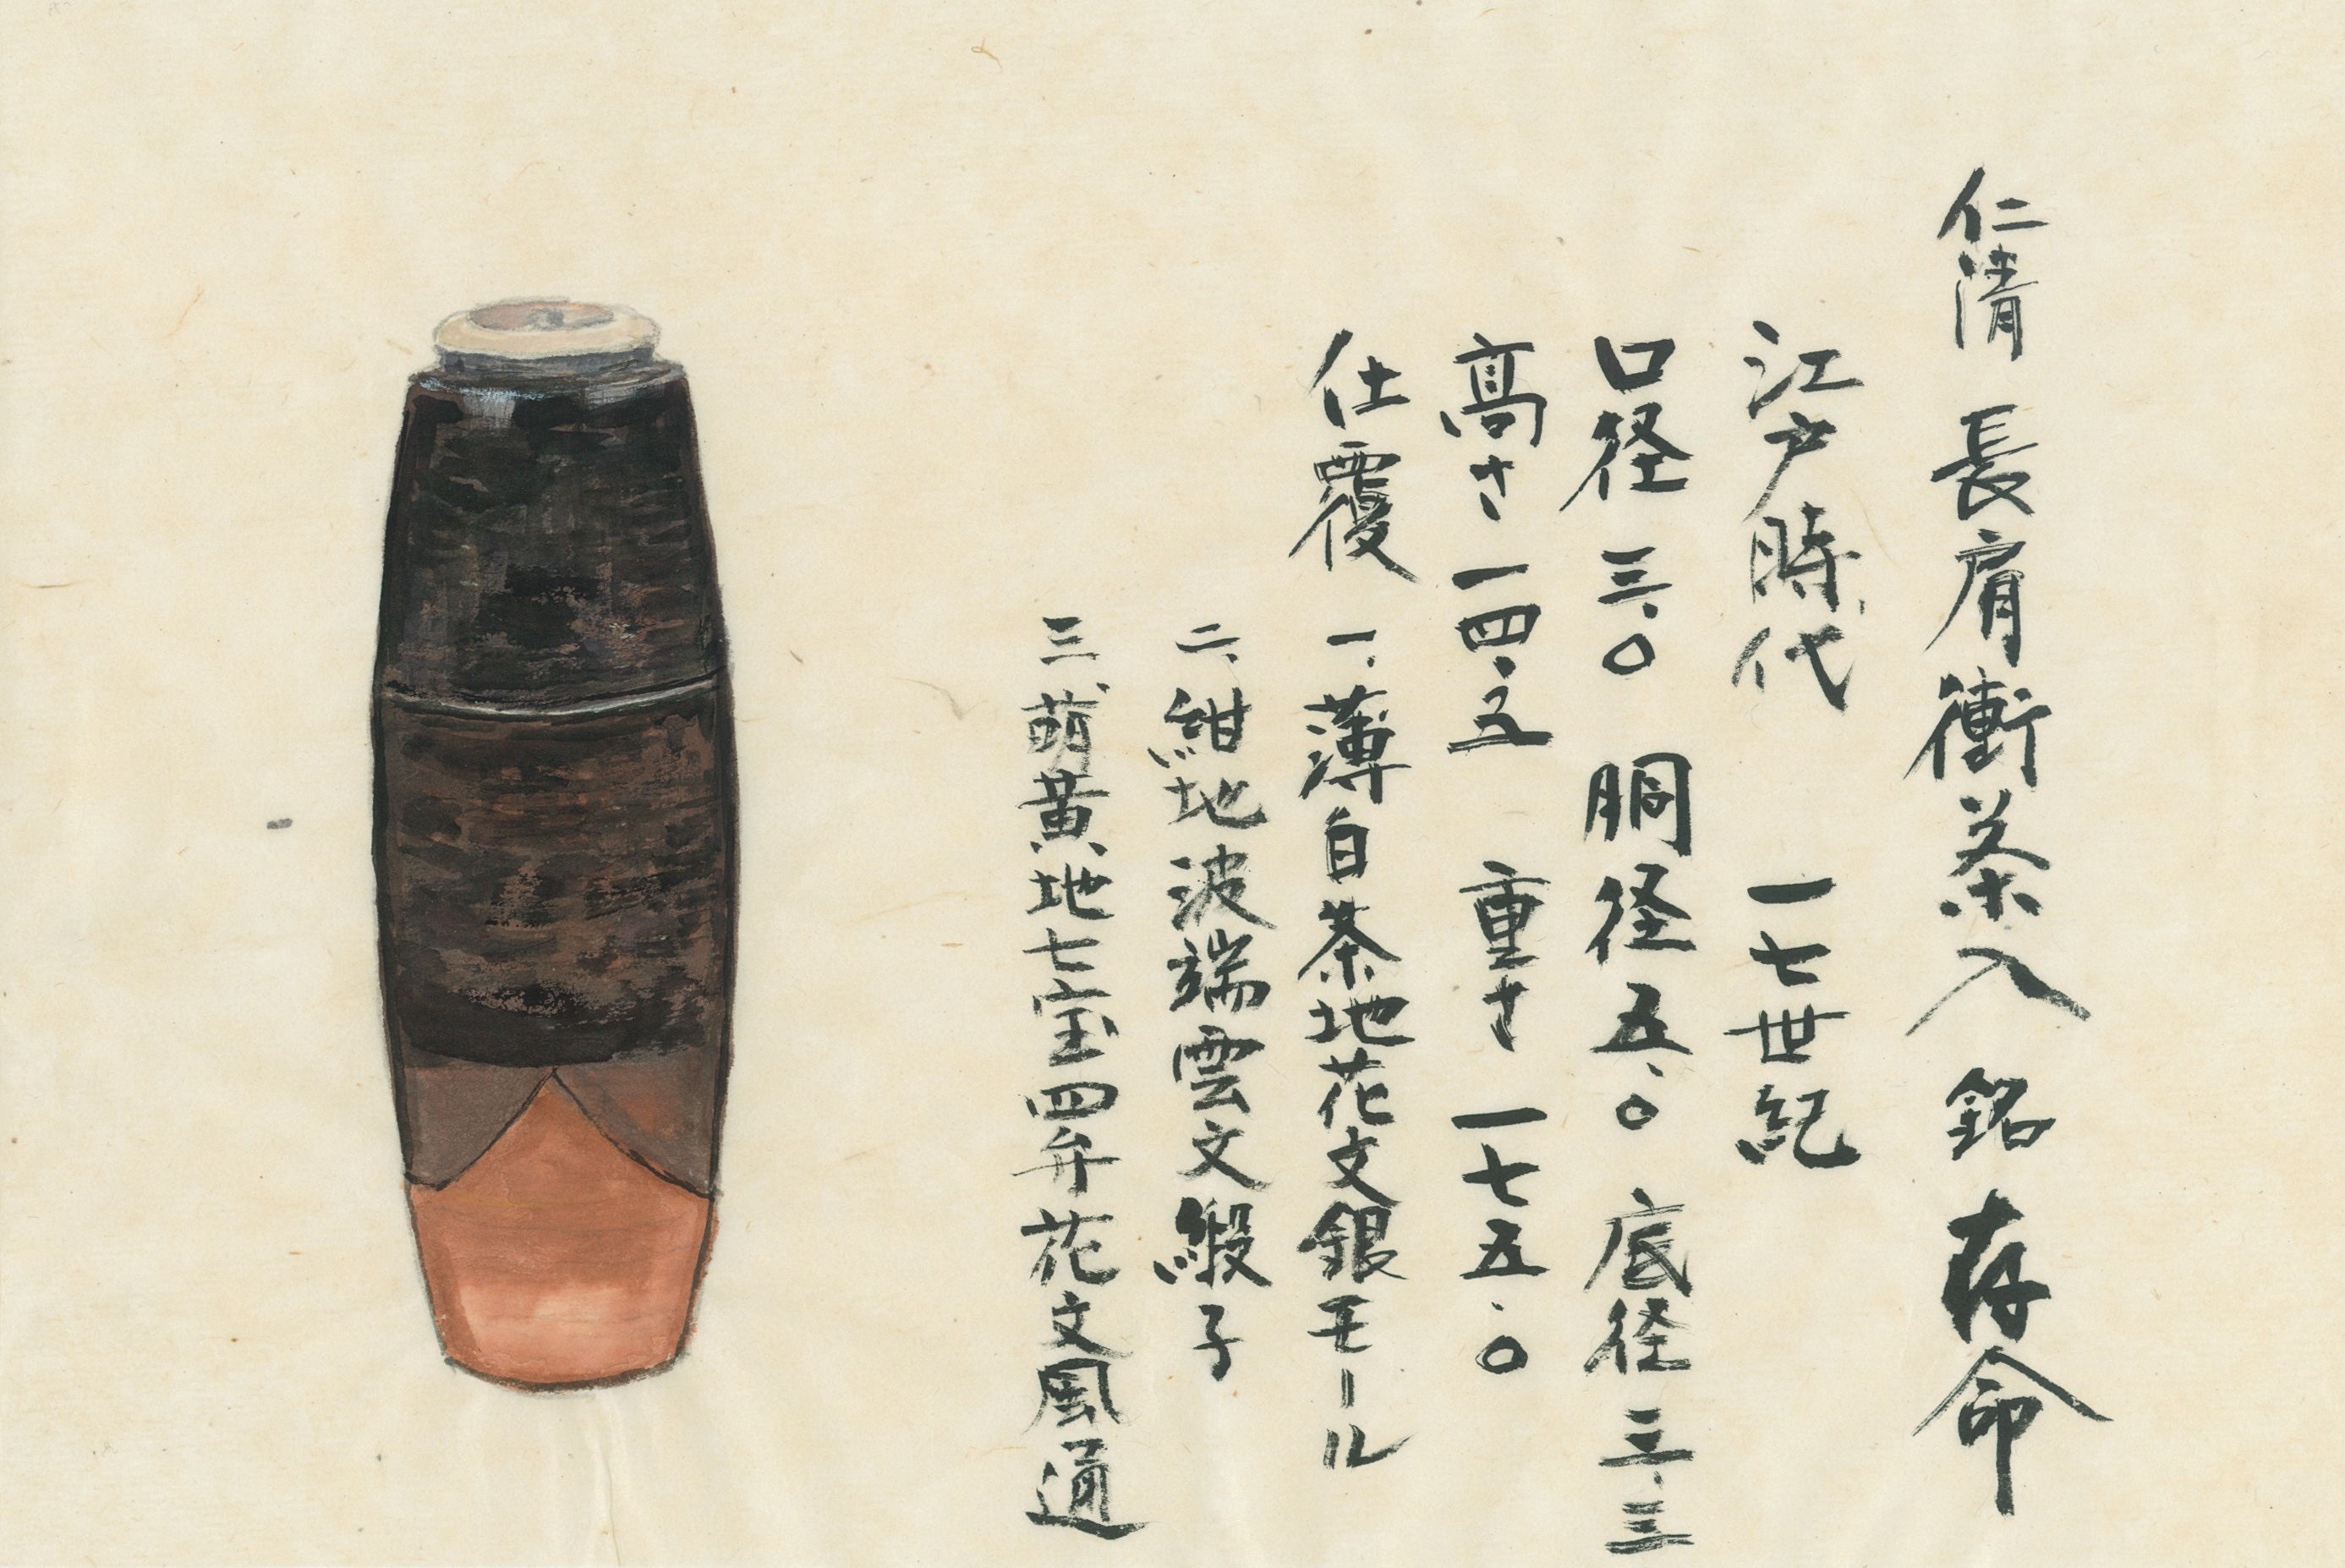 仁清 長肩衝茶入 銘 存命
江戸時代 一七世紀
口径 三.〇 胴径 五.〇 底径 三.三
高さ 一四.五 重さ 一七五.〇
仕覆 一、薄白茶地花文銀モール
二、紺地波端雲文緞子
三、萌黄地七宝四弁花文風通